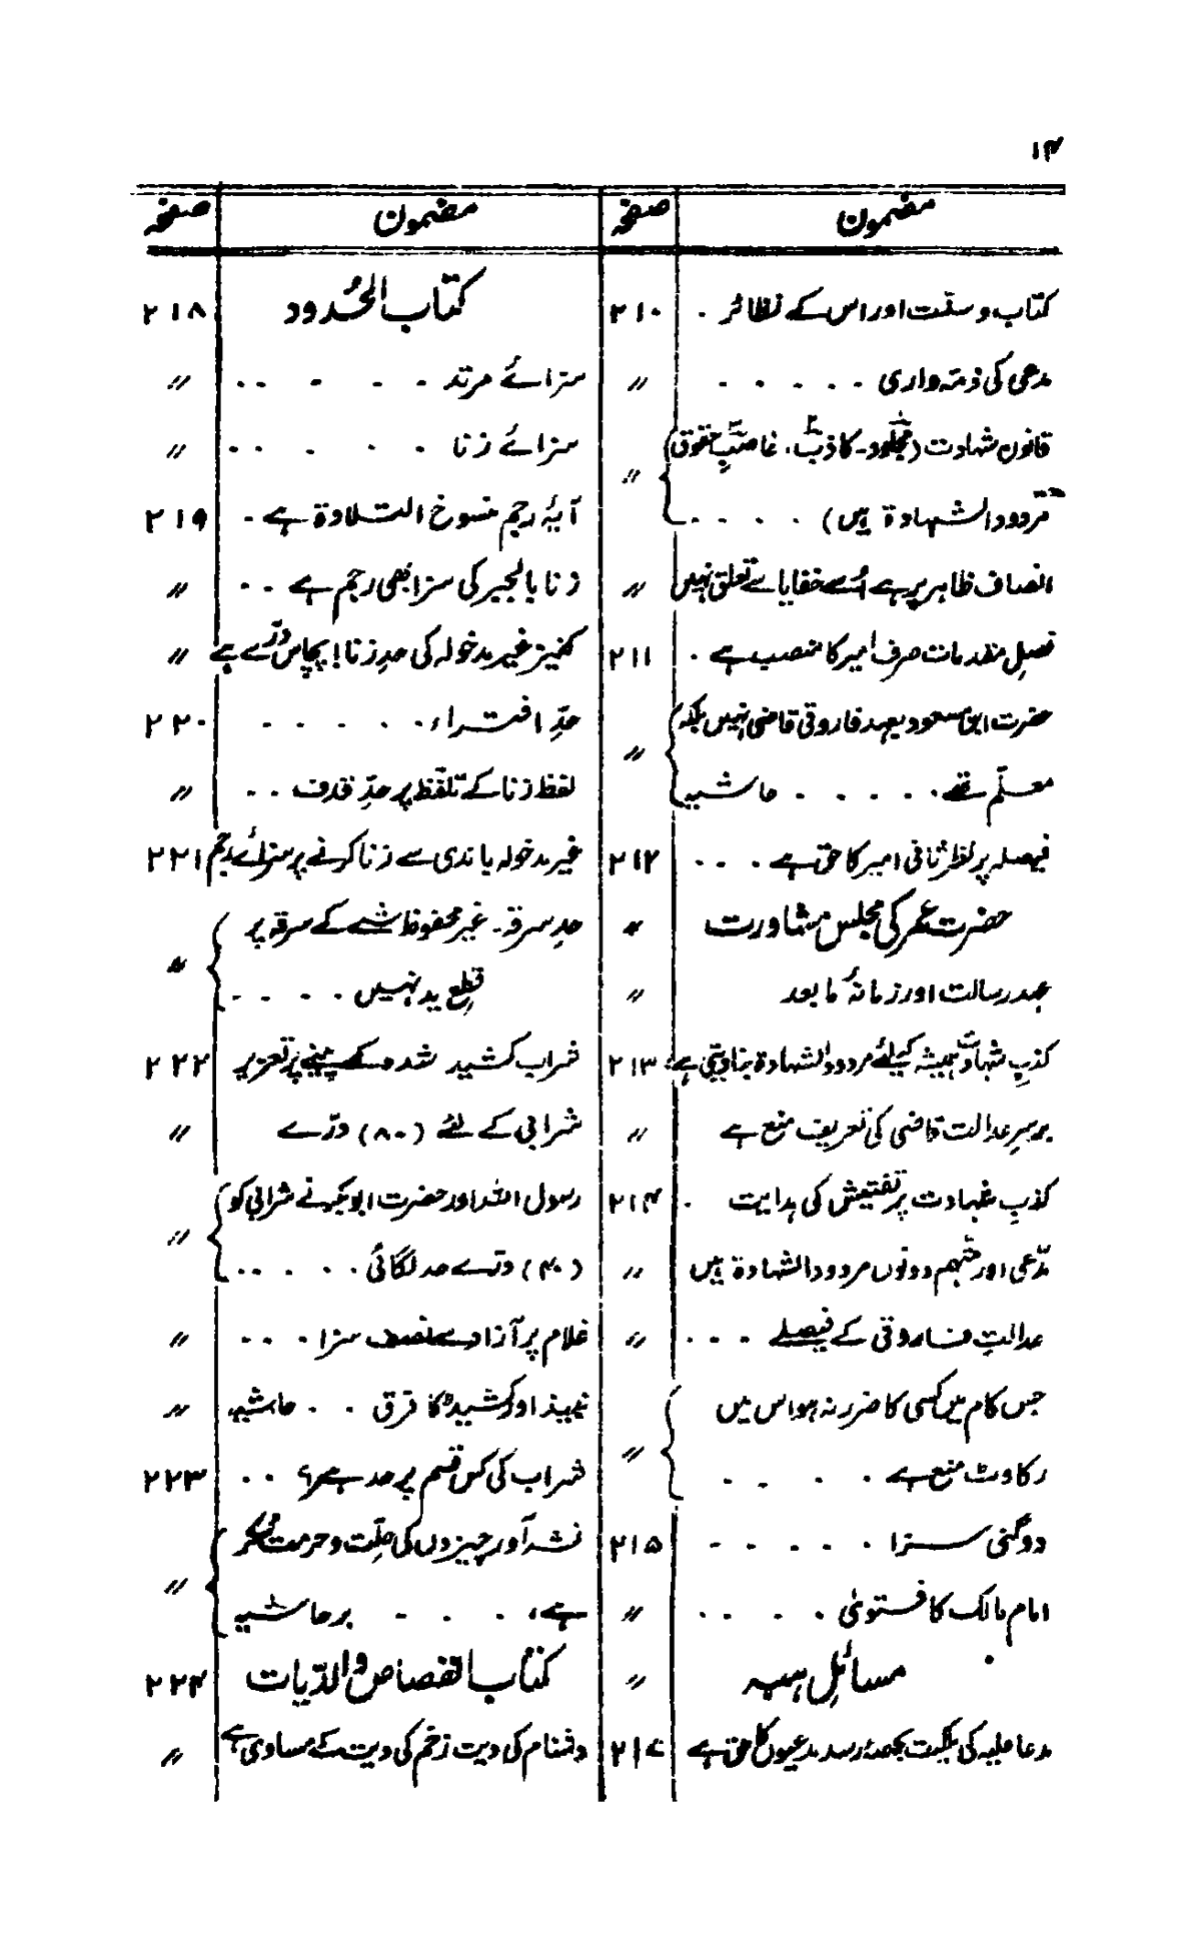 ۱۴
مضمون صفحہ
کتاب و سنت اور اس کے نظائر . ۲۱۰
مدعی کی ذمہ داری . . . . . ״
قانون شہادت (مجلود۔ کاذب، غاصبِ حقوق
مردود الشہادۃ ہیں) . . . . ״
انصاف ظاہر پر ہے اُسے خفایا سے تعلق نہیں ״
فصلِ مقدمات صرف امیر کا منصب ہے . ۲۱۱
حضرت ابن مسعود بعہد فاروقی قاضی نہیں بلکہ
معلّم تھے . . . . . حاشیہ ״
فیصلہ پر نظر ثانی امیر کا حق ہے . . . ۲۱۲
حضرت عمر کی مجلس مشاورت ״
عہد رسالت اور زمانۂ ما بعد ״
کذبِ شہادت ہمیشہ کیلئے مردود الشہادۃ بنا دیتی ہے ۲۱۳
برسرِ عدالت قاضی کی تعریف منع ہے ״
کذبِ شہادت پر تفتیش کی ہدایت . ۲۱۴
مدّعی اور متہم دونوں مردود الشہادۃ ہیں ״
عدالتِ فاروقی کے فیصلے . . . ״
جس کام میں کسی کا ضرر نہ ہو اس میں
رکاوٹ منع ہے . . . . ״
دوگنی سزا . . . . . ۲۱۵
امام مالک کا فتویٰ . . . . ״
مسائلِ ہبہ ״
مدعا علیہ کی ملکیت بحصۂ رسد مدعیوں کا حق ہے ۲۱۷
مضمون صفحہ
کتاب الحُدود ۲۱۸
سزائے مرتد . . . . . ״
سزائے زنا . . . . . ״
آیۂ رجم منسوخ التلاوۃ ہے . ۲۱۹
زنا بالجبر کی سزا بھی رجم ہے . . ״
کنیز غیر مدخولہ کی حدِ زنا! پچاس درّے ہے ״
حدِّ افتراء . . . . . ۲۲۰
لفظ زنا کے تلفّظ پر حدِّ قذف . . ״
غیر مدخولہ باندی سے زنا کرنے پر سزائے رجم ۲۲۱
حدِ سرقہ۔ غیر محفوظ شے کے سرقہ پر
قطع ید نہیں . . . . ״
شراب کشید شدہ کے پینے پر تعزیر ۲۲۲
شرابی کے لئے (۸۰) درّے ״
رسول اللہ اور حضرت ابوبکر نے شرابی کو
(۴۰) درّے حد لگائی . . . . . ״
غلام پر آزاد سے نصف سزا . . . ״
نبیذ اور کشیدہ کا فرق . . حاشیہ ״
شراب کی کس قسم پر حد ہے؟ . . ۲۲۳
نشہ آور چیزوں کی حلّت و حرمت
ہے، . . . . بر حاشیہ ״
کتاب القصاص والدّیات ۲۲۴
دشنام کی دیت زخم کی دیت کے مساوی ہے ״